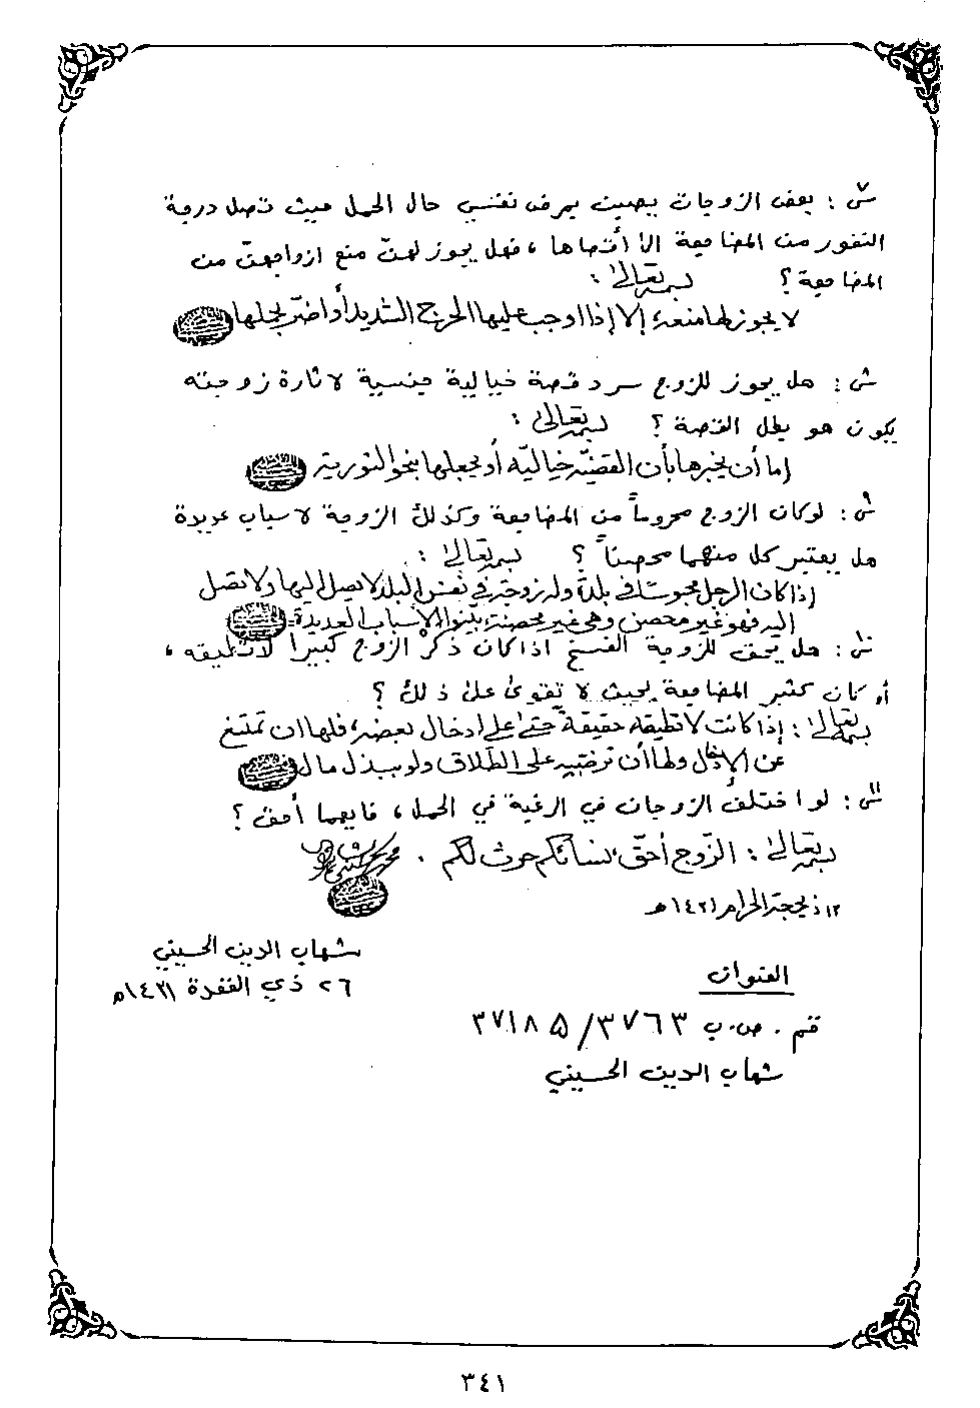 س٧: بعض الزوجات يصبن بمرض نفسي حال الحمل حيث تصل درجة
النفور من المضاجعة الى أقصاها، فهل يجوز لهنّ منع ازواجهنّ من
المضاجعة؟ بسمه تعالى:
لا يجوز لها منعه، إلا إذا اوجب عليها الحرج الشديد أو اضرّ بحملها
س٨: هل يجوز للزوج سرد قصة خيالية جنسية لاثارة زوجته
يكون هو بطل القصة؟ بسمه تعالى:
إما أن يخبرها بأن القضيّة خياليّة أو يجعلها بنحو التورية
س٩: لو كان الزوج محروماً من المضاجعة وكذلك الزوجة لاسباب عديدة
هل يعتبر كل منهما محصناً؟ بسمه تعالى:
إذا كان الرجل محبوسًا في بلدة وله زوجة في نفس البلد لا يصل اليها ولا تصل
اليه فهو غير محصن وهي غير محصنة، بيّنوا الأسباب العديدة.
س١٠: هل يحق للزوجة الفسخ اذا كان ذكر الزوج كبيراً لا تطيقه،
أو كان كثير المضاجعة بحيث لا تقوى على ذلك؟
بسمه تعالى: إذا كانت لا تطيقه حقيقة حتى على إدخال بعضه، فلها ان تمتنع
عن الإدخال ولها أن ترضيه على الطلاق ولو ببذل مال
س١١: لو اختلف الزوجان في الرغبة في الحمل، فايهما أحق؟
بسمه تعالى: الزّوج أحقّ، نسائكم حرث لكم.
١٢ ذيحجة الحرام ١٤٢١هـ
شهاب الدين الحسيني
٢٦ ذي القعدة ١٤٢١هـ
العنوان
قم. ص.ب ٣٧٦٣/٣٧١٨٥
شهاب الدين الحسيني
٣٤١